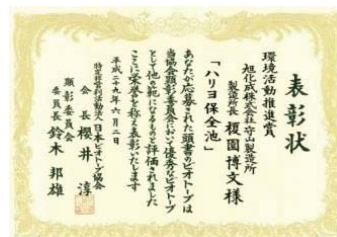 表彰状
環境活動推進賞
旭化成株式会社守山製造所
製造所長 榎園博文様
「ハリヨ保全池」
あなたが応募された頭書のビオトープは
当協会顕彰委員会において優秀なビオトープ
として他の範になるものと評価されました
ここに栄誉を称え表彰いたします
平成二十九年六月二日
特定非営利活動法人日本ビオトープ協会
会長 櫻井淳
顕彰委員会
委員長 鈴木邦雄